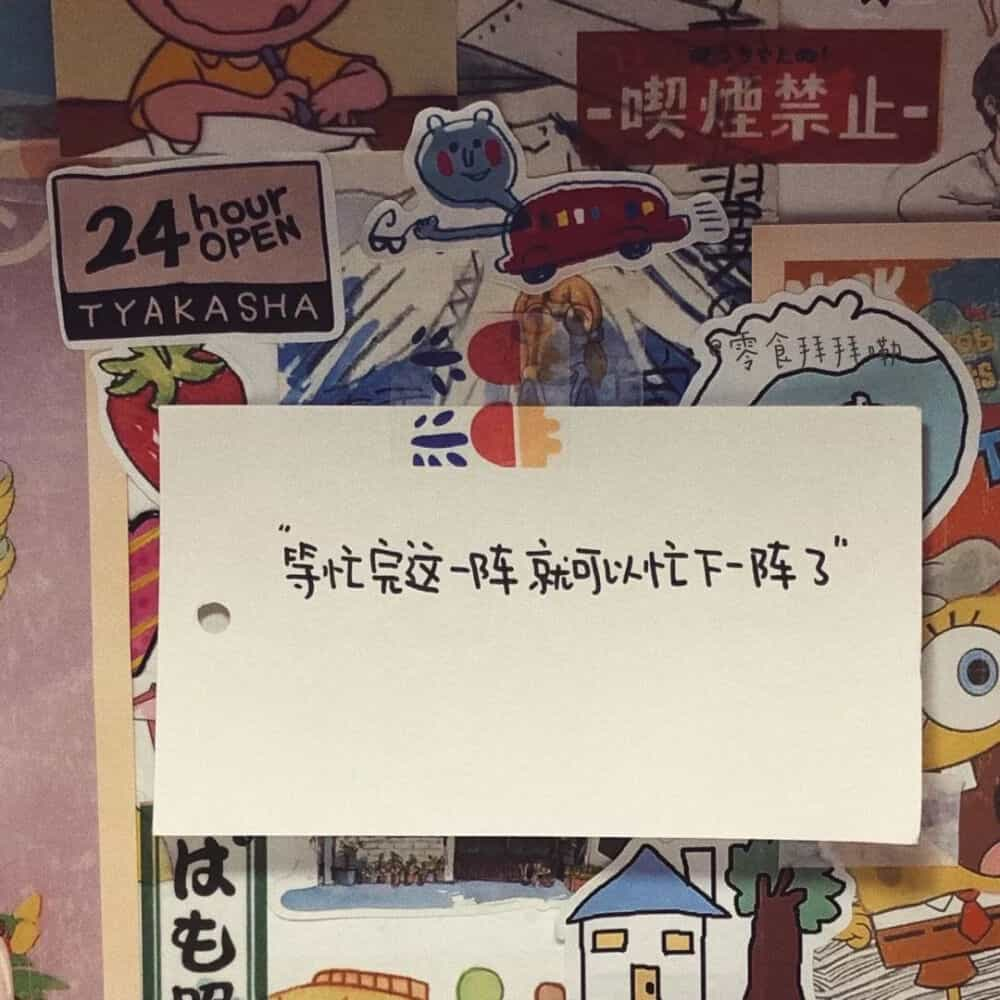 -喫煙禁止-
24 hour
OPEN
TYAKASHA
零食拜拜嘞
“等忙完这一阵 就可以忙下一阵了”
ばも